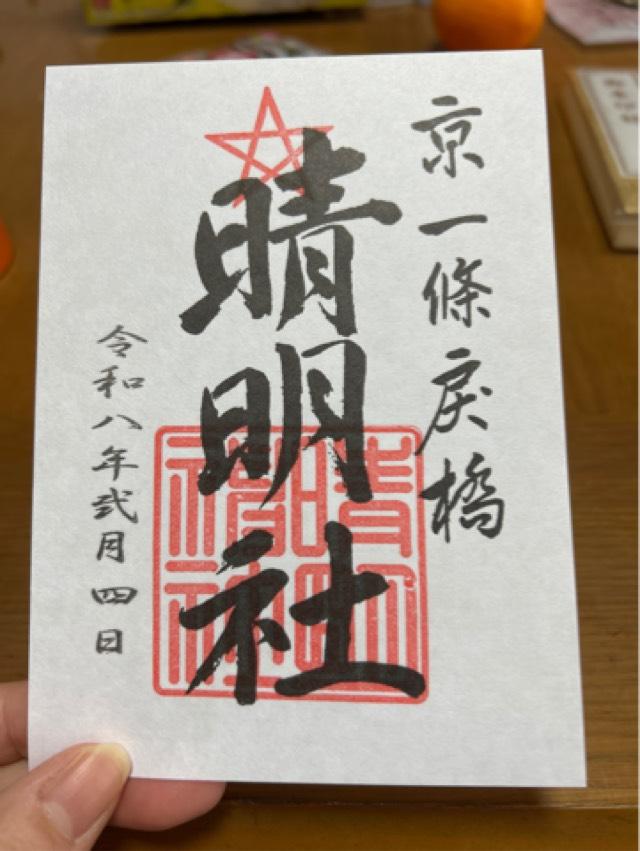 京一條戻橋
晴明社
令和八年弐月四日
晴明
神社